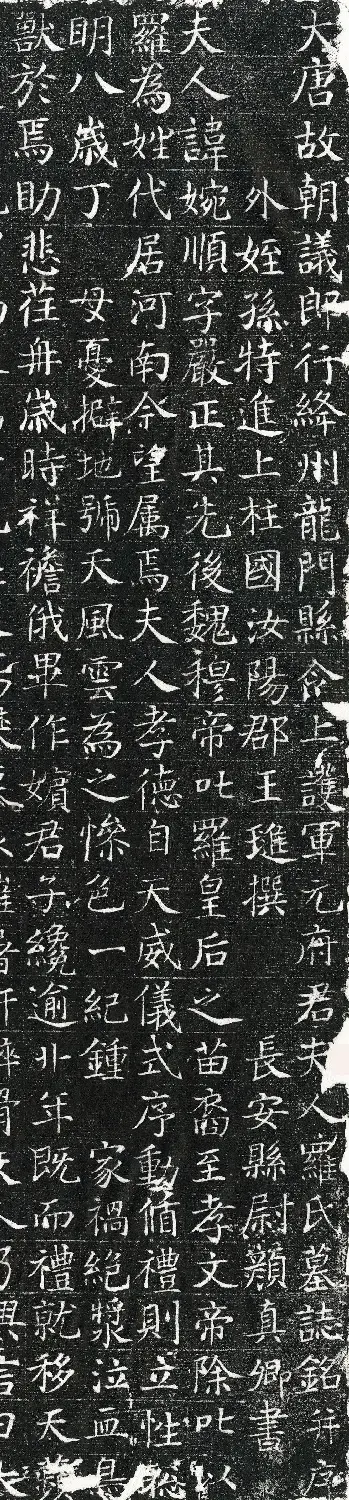 大唐故朝議郎行絳州龍門縣令上護軍元府君夫人羅氏墓誌銘并序
外姪孫特進上柱國汝陽郡王璡撰 長安縣尉顏真卿書
夫人諱婉順字嚴正其先後魏穆帝叱羅皇后之苗裔至孝文帝除叱以
羅為姓代居河南余望属焉夫人孝德自天威儀式序動循禮則立性聡
明八歲丁 母憂擗地號天風雲為之慘色一紀鍾 家禍絕漿泣血鳥
獸於焉助悲荏苒歲時祥禫俄畢作嬪君子纔逾廿年既而禮就移天